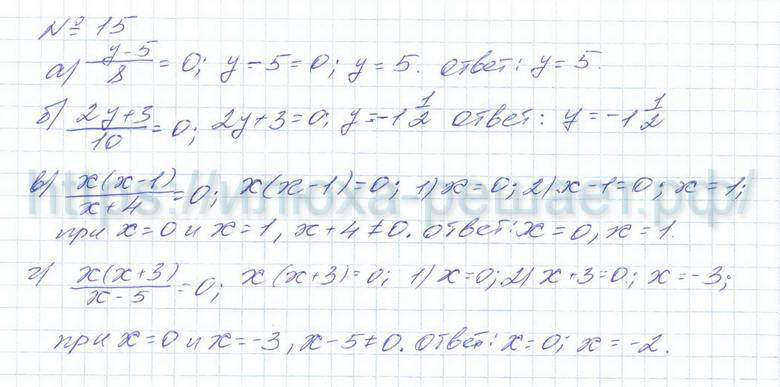 № 15
а) (y-5)/8 = 0; y-5=0; y=5. ответ: y=5.
б) (2y+3)/10 = 0; 2y+3=0; y=-1 1/2 ответ: y=-1 1/2
в) x(x-1)/(x+4) = 0; x(x-1)=0; 1) x=0; 2) x-1=0; x=1;
при x=0 и x=1, x+4≠0. ответ: x=0, x=1.
г) x(x+3)/(x-5) = 0; x(x+3)=0; 1) x=0; 2) x+3=0; x=-3;
при x=0 и x=-3, x-5≠0. ответ: x=0; x=-2.
https://илюха-решает.рф/